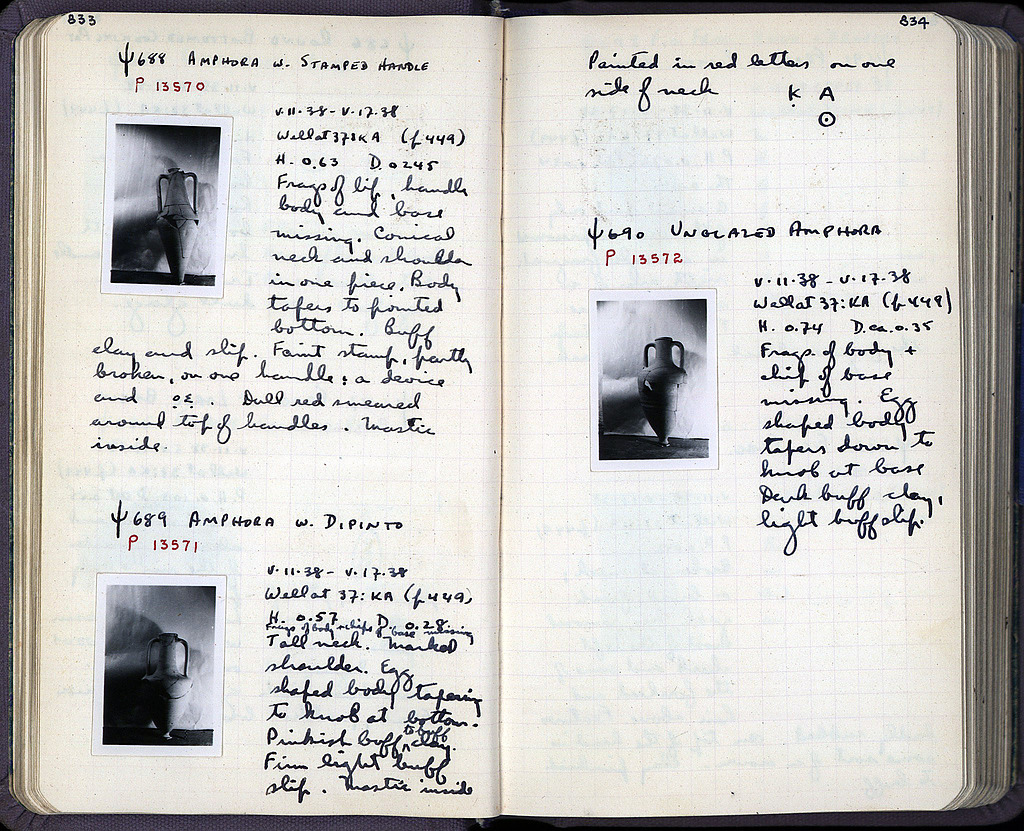 833
Ψ688 AMPHORA W. STAMPED HANDLE
P 13570
V.11.38 - V.17.38
Well at 37:KA (p449)
H. 0.63 D. 0.245
Frags of lip, handle
body and base
missing. Conical
neck and shoulder
in one piece. Body
tapers to pointed
bottom. Buff
clay and slip. Faint stamp, partly
broken, on one handle: a device
and ΟΣ Dull red smeared
around top of handles. Mastic
inside.
Ψ689 AMPHORA W. DIPINTO
P 13571
V.11.38 - V.17.38
Well at 37:KA (p449)
H. 0.57 D. 0.28
Frags of body & chips of base missing
Tall neck. Marked
shoulder. Egg
shaped body tapering
to knob at bottom.
Pinkish buff to buff clay.
Firm light buff
slip. Mastic inside
834
Painted in red letters on one
side of neck K A
⊙
Ψ690 UNGLAZED AMPHORA
P 13572
V.11.38 - V.17.38
Well at 37:KA (p449)
H. 0.74 D. ca. 0.35
Frags. of body +
chip of base
missing. Egg
shaped body
tapers down to
knob at base
Dark buff clay,
light buff slip.